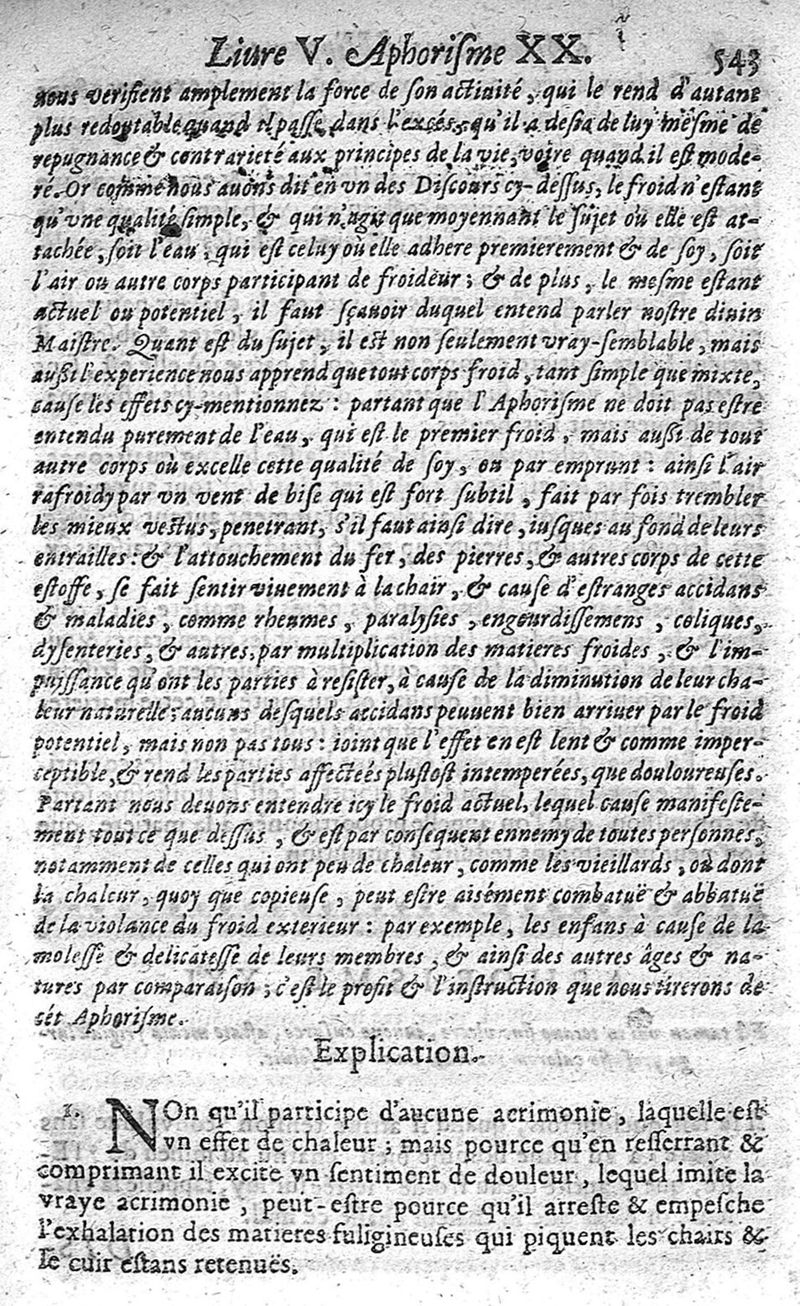 Liure V. Aphorisme XX. 543
nous verifient amplement la force de son actiuité, qui le rend d'autant
plus redoutable quand il passe dans l'excés, qu'il a desia de luy mesme de
repugnance & contrarieté aux principes de la vie, voire quand il est mode-
ré. Or comme nous auons dit en vn des Discours cy-dessus, le froid n'estant
qu'vne qualité simple, & qui n'agit que moyennant le sujet où elle est at-
tachée, soit l'eau, qui est celuy où elle adhere premierement & de soy, soit
l'air ou autre corps participant de froideur; & de plus, le mesme estant
actuel ou potentiel, il faut sçauoir duquel entend parler nostre diuin
Maistre. Quant est du sujet, il est non seulement vray-semblable, mais
aussi l'experience nous apprend que tout corps froid, tant simple que mixte,
cause les effets cy-mentionnez: partant que l'Aphorisme ne doit pas estre
entendu purement de l'eau, qui est le premier froid, mais aussi de tout
autre corps où excelle cette qualité de soy, ou par emprunt: ainsi l'air
rafroidy par vn vent de bise qui est fort subtil, fait par fois trembler
les mieux vestus, penetrant, s'il faut ainsi dire, iusques au fond de leurs
entrailles: & l'attouchement du fer, des pierres, & autres corps de cette
estoffe, se fait sentir viuement à la chair, & cause d'estranges accidans
& maladies, comme rheumes, paralysies, engourdissemens, coliques,
dysenteries, & autres, par multiplication des matieres froides, & l'im-
puissance qu'ont les parties à resister, à cause de la diminution de leur cha-
leur naturelle: aucuns desquels accidans peuuent bien arriuer par le froid
potentiel, mais non pas tous: ioint que l'effet en est lent & comme imper-
ceptible, & rend les parties affectées plustost intemperées, que douloureuses.
Partant nous deuons entendre icy le froid actuel, lequel cause manifeste-
ment tout ce que dessus, & est par consequent ennemy de toutes personnes,
notamment de celles qui ont peu de chaleur, comme les vieillards, où dont
la chaleur, quoy que copieuse, peut estre aisément combatuë & abbatuë
de la violance du froid exterieur: par exemple, les enfans à cause de la
molesse & delicatesse de leurs membres, & ainsi des autres âges & na-
tures par comparaison; c'est le profit & l'instruction que nous tirerons de
cét Aphorisme.
Explication.
1. NOn qu'il participe d'aucune acrimonie, laquelle est
vn effet de chaleur; mais pource qu'en resserrant &
comprimant il excite vn sentiment de douleur, lequel imite la
vraye acrimonie, peut-estre pource qu'il arreste & empesche
l'exhalation des matieres fuligineuses qui piquent les chairs &
le cuir estans retenuës.